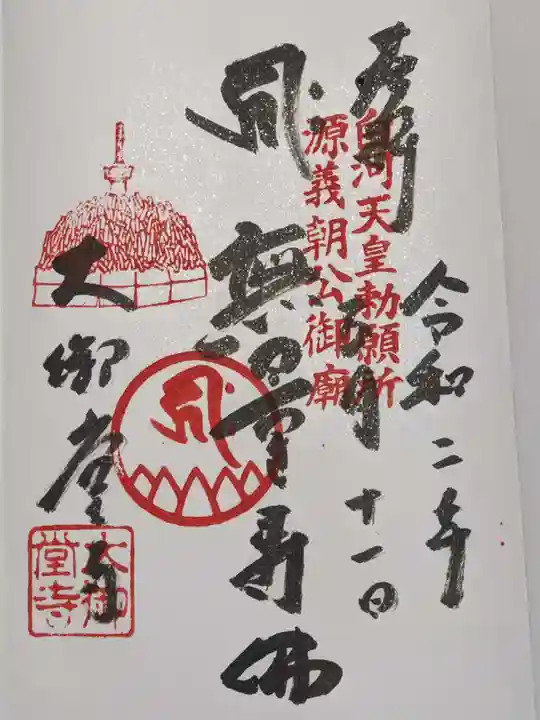 奉拝
白河天皇勅願所
源義朝公御廟
令和二年
十一日
無量寿佛
大御堂寺
大御
堂寺